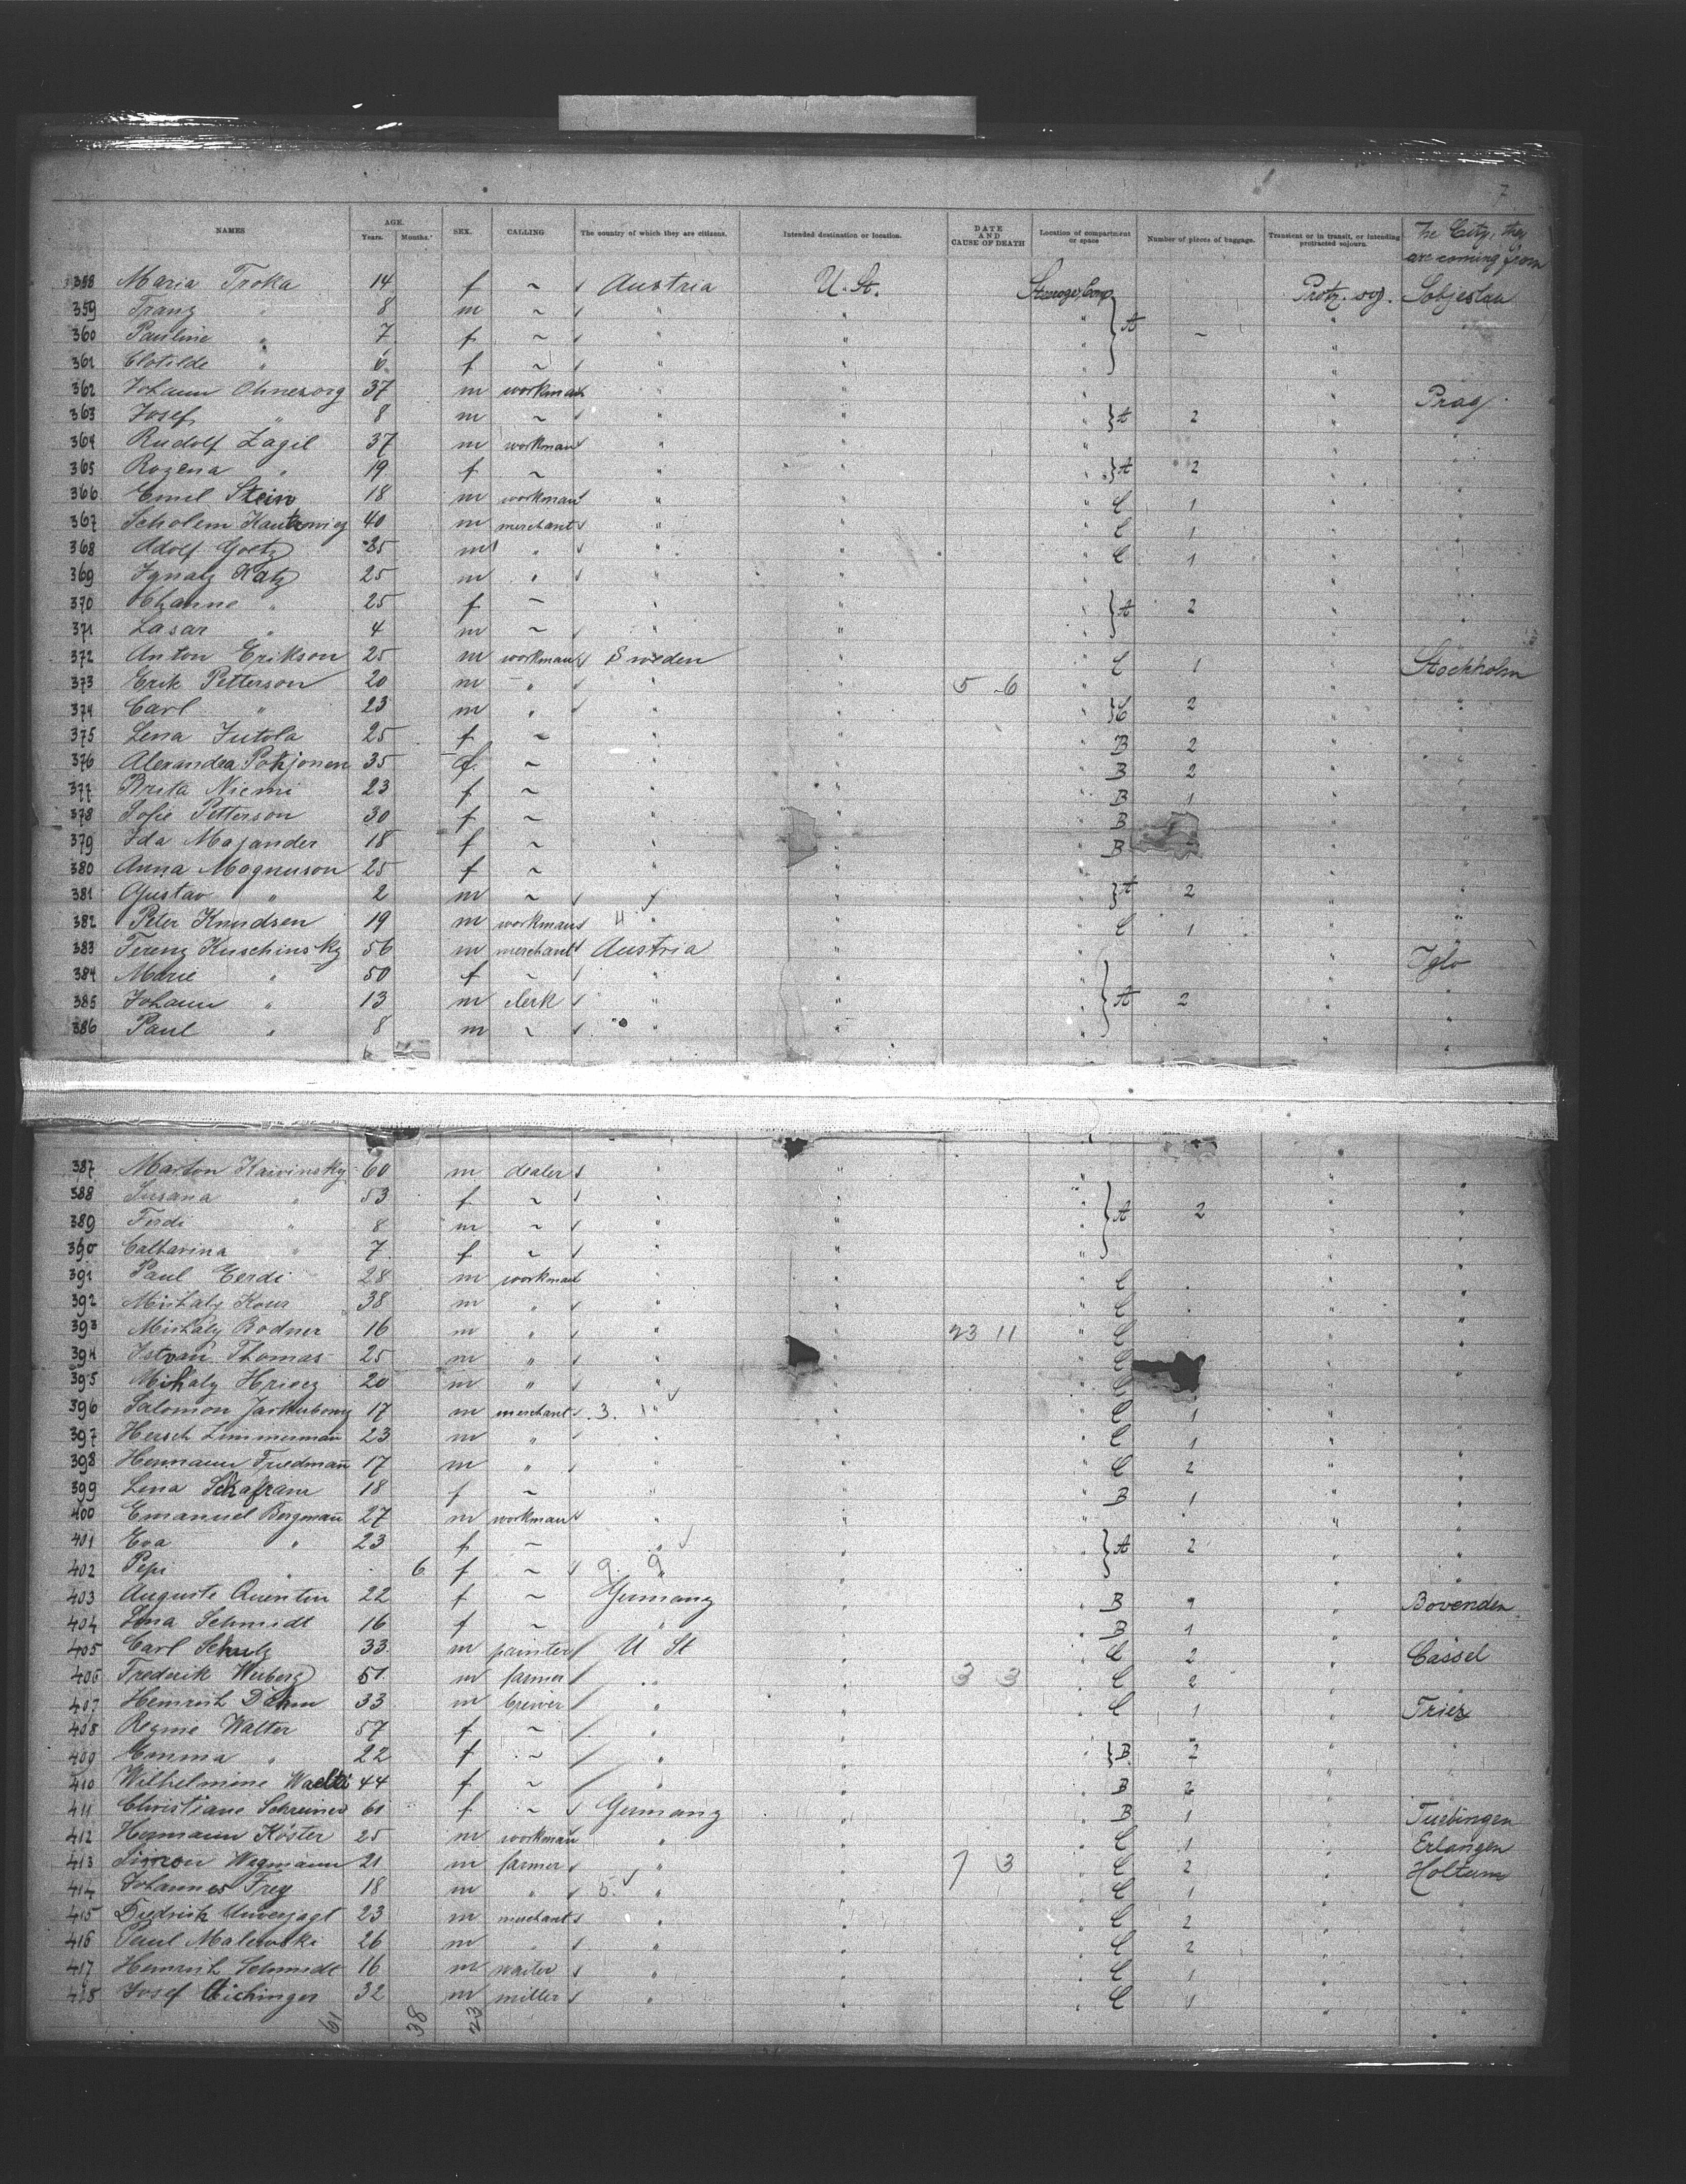 7
NAMES AGE. Years. Months. SEX. CALLING The country of which they are citizens. Intended destination or location. DATE AND CAUSE OF DEATH Location of compartment or space Number of pieces of baggage. Transient or in transit, or intending protracted sojourn. The City, they are coming from
358 Maria Troka 14 f ~ Austria U. St. Steerage Comp Protr. soj. Sobjeslau
359 Franz " 8 m ~ " " " A ~ "
360 Pauline " 7 f ~ " " " "
361 Clotilde " 6 f ~ " " " "
362 Johann Ohnesorg 37 m workman " " " " Prag
363 Josef " 8 m ~ " " " A 2 "
364 Rudolf Zagel 37 m workman " " " " "
365 Rozena " 19 f ~ " " " A 2 " "
366 Emil Stein 18 m workman " " " C 1 " "
367 Scholem 40 m merchant " " " C 1 " "
368 Adolf Goetz 25 m " " " " C 1 " "
369 Ignatz Katz 25 m " " " " " "
370 Channe " 25 f ~ " " " A 2 " "
371 Lasar " 4 m ~ " " " " "
372 Anton Erikson 25 m workman Sweden " " C 1 " Stockholm
373 Erik Petterson 20 m " " " 5 6 " " "
374 Carl " 23 m " " " " C 2 " "
375 Lena Jutola 25 f ~ " " " B 2 " "
376 Alexandra Pohjonen 35 f ~ " " " B 2 " "
377 Brita Niemi 23 f ~ " " " B 1 " "
378 Sofie Petterson 30 f ~ " " " B " "
379 Ida Majander 18 f ~ " " " B " "
380 Anna Magnuson 25 f ~ " " " " "
381 Gustav " 2 m ~ " " " A 2 " "
382 Peter Knudsen 19 m workman 4 " " " C 1 " "
383 Ferenz Kuschinsky 56 m merchant Austria " " " Iglo
384 Marie " 50 f ~ " " " " "
385 Johann " 13 m clerk " " " A 2 " "
386 Paul " 8 m ~ " " " " "
387 Marton Krivinsky 60 m dealer " " " " "
388 Susana " 53 f ~ " " " " "
389 Ferdi " 8 m ~ " " " A 2 " "
390 Catharina " 7 f ~ " " " " "
391 Paul Gerdi 28 m workman " " " C " "
392 Mihaly 38 m " " " " C " "
393 Mihaly Bodner 16 m " " " 23 11 " C " "
394 Istvan Thomas 25 m " " " " C " "
395 Mihaly 20 m " " " " C " "
396 Salomon 17 m merchant 3. 1 " " " C 1 " "
397 Hersch Zimmermann 23 m " " " " C 1 " "
398 Hermann Friedmann 17 m " " " " C 2 " "
399 Lina Schafranr 18 f ~ " " " B 1 " "
400 Emanuel Bergmann 27 m workman " " " " "
401 Eva " 23 f ~ " " " A 2 " "
402 Pepi " 6 f ~ 9. 9 " " " "
403 Auguste Quentin 22 f ~ Germany " " B " Bovenden
404 Lina Schmidt 16 f ~ " " " B 1 " "
405 Carl Schulz 33 m painter U St " " C 2 " Cassel
406 Frederik Wiberg 51 m farmer " " 3 3 " C 2 " "
407 Heinrich Dahm 33 m brewer " " " C 1 " Trier
408 Regine Walter 57 f ~ " " " " "
409 Emma " 22 f ~ " " " B 2 " "
410 Wilhelmine 44 f ~ " " " B 2 " "
411 Christiane Schreiner 61 f ~ Germany " " B 1 " Tuebingen
412 Hermann Köster 25 m workman " " " C 1 " Erlangen
413 Simon Wegmann 21 m farmer " " 7 3 " C 2 " Holtum
414 Johannes Frey 18 m " 5. " " " C 1 " "
415 Diedrich Unverzagt 23 m merchant " " " C 2 " "
416 Paul Malewski 26 m " " " " C 2 " "
417 Heinrich Schmidt 16 m waiter " " " C 1 " "
418 Josef Eichinger 32 m miller " " " C 1 " "
61 38 23